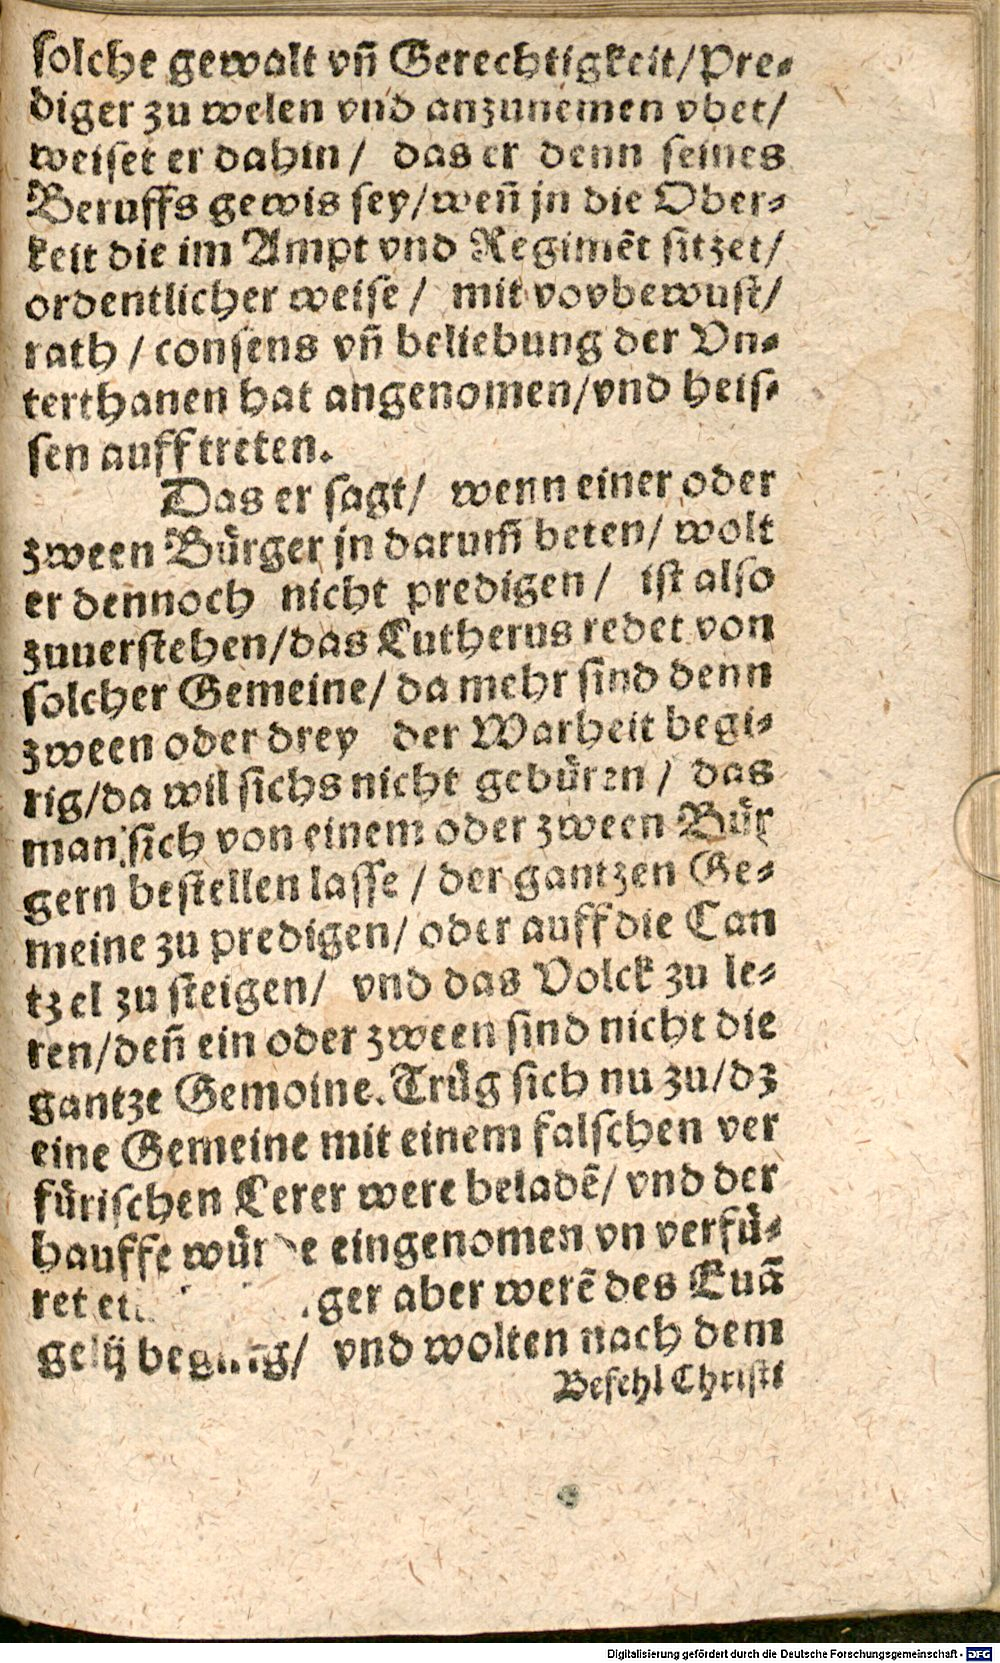 solche gewalt vñ Gerechtigkeit/Pre⸗
diger zu welen vnd anzunemen vbet/
weiset er dahin/ das er denn seines
Beruffs gewis sey/weñ jn die Ober⸗
keit die im Ampt vnd Regimēt sitzet/
ordentlicher weise/ mit vovbewust/
rath/consens vñ beliebung der Vn⸗
terthanen hat angenomen/vnd heis⸗
sen aufftreten.
Das er sagt/ wenn einer oder
zween Bürger jn darum̃ beten/ wolt
er dennoch nicht predigen/ ist also
zuuerstehen/das Lutherus redet von
solcher Gemeine/ da mehr sind denn
zween oder drey der Warheit begi⸗
rig/da wil sichs nicht gebüren/ das
man sich von einem oder zween Bür
gern bestellen lasse/der gantzen Ge⸗
meine zu predigen/ oder auff die Can
tzel zu steigen/ vnd das Volck zu le⸗
ren/deñ ein oder zween sind nicht die
gantze Gemoine. Trüg sich nu zu/dz
eine Gemeine mit einem falschen ver
fürischen Lerer were beladē/ vnd der
hauffe würde eingenomen vn verfü⸗
ret aber werē des Euā
gelij vnd wolten nach dem
Befehl Christi
Digitalisierung gefördert durch die Deutsche Forschungsgemeinschaft - DFG